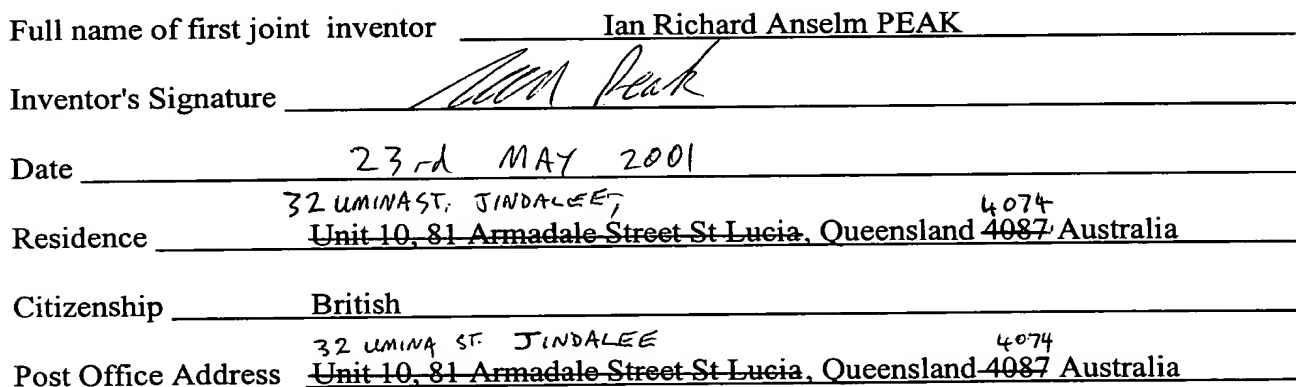 Full name of first joint inventor Ian Richard Anselm PEAK
Inventor's Signature Ian Peak
Date 23rd MAY 2001
32 UMINA ST. JINDALEE, 4074
Residence Unit 10, 81 Armadale Street St Lucia, Queensland 4087 Australia
Citizenship British
32 UMINA ST. JINDALEE 4074
Post Office Address Unit 10, 81 Armadale Street St Lucia, Queensland 4087 Australia